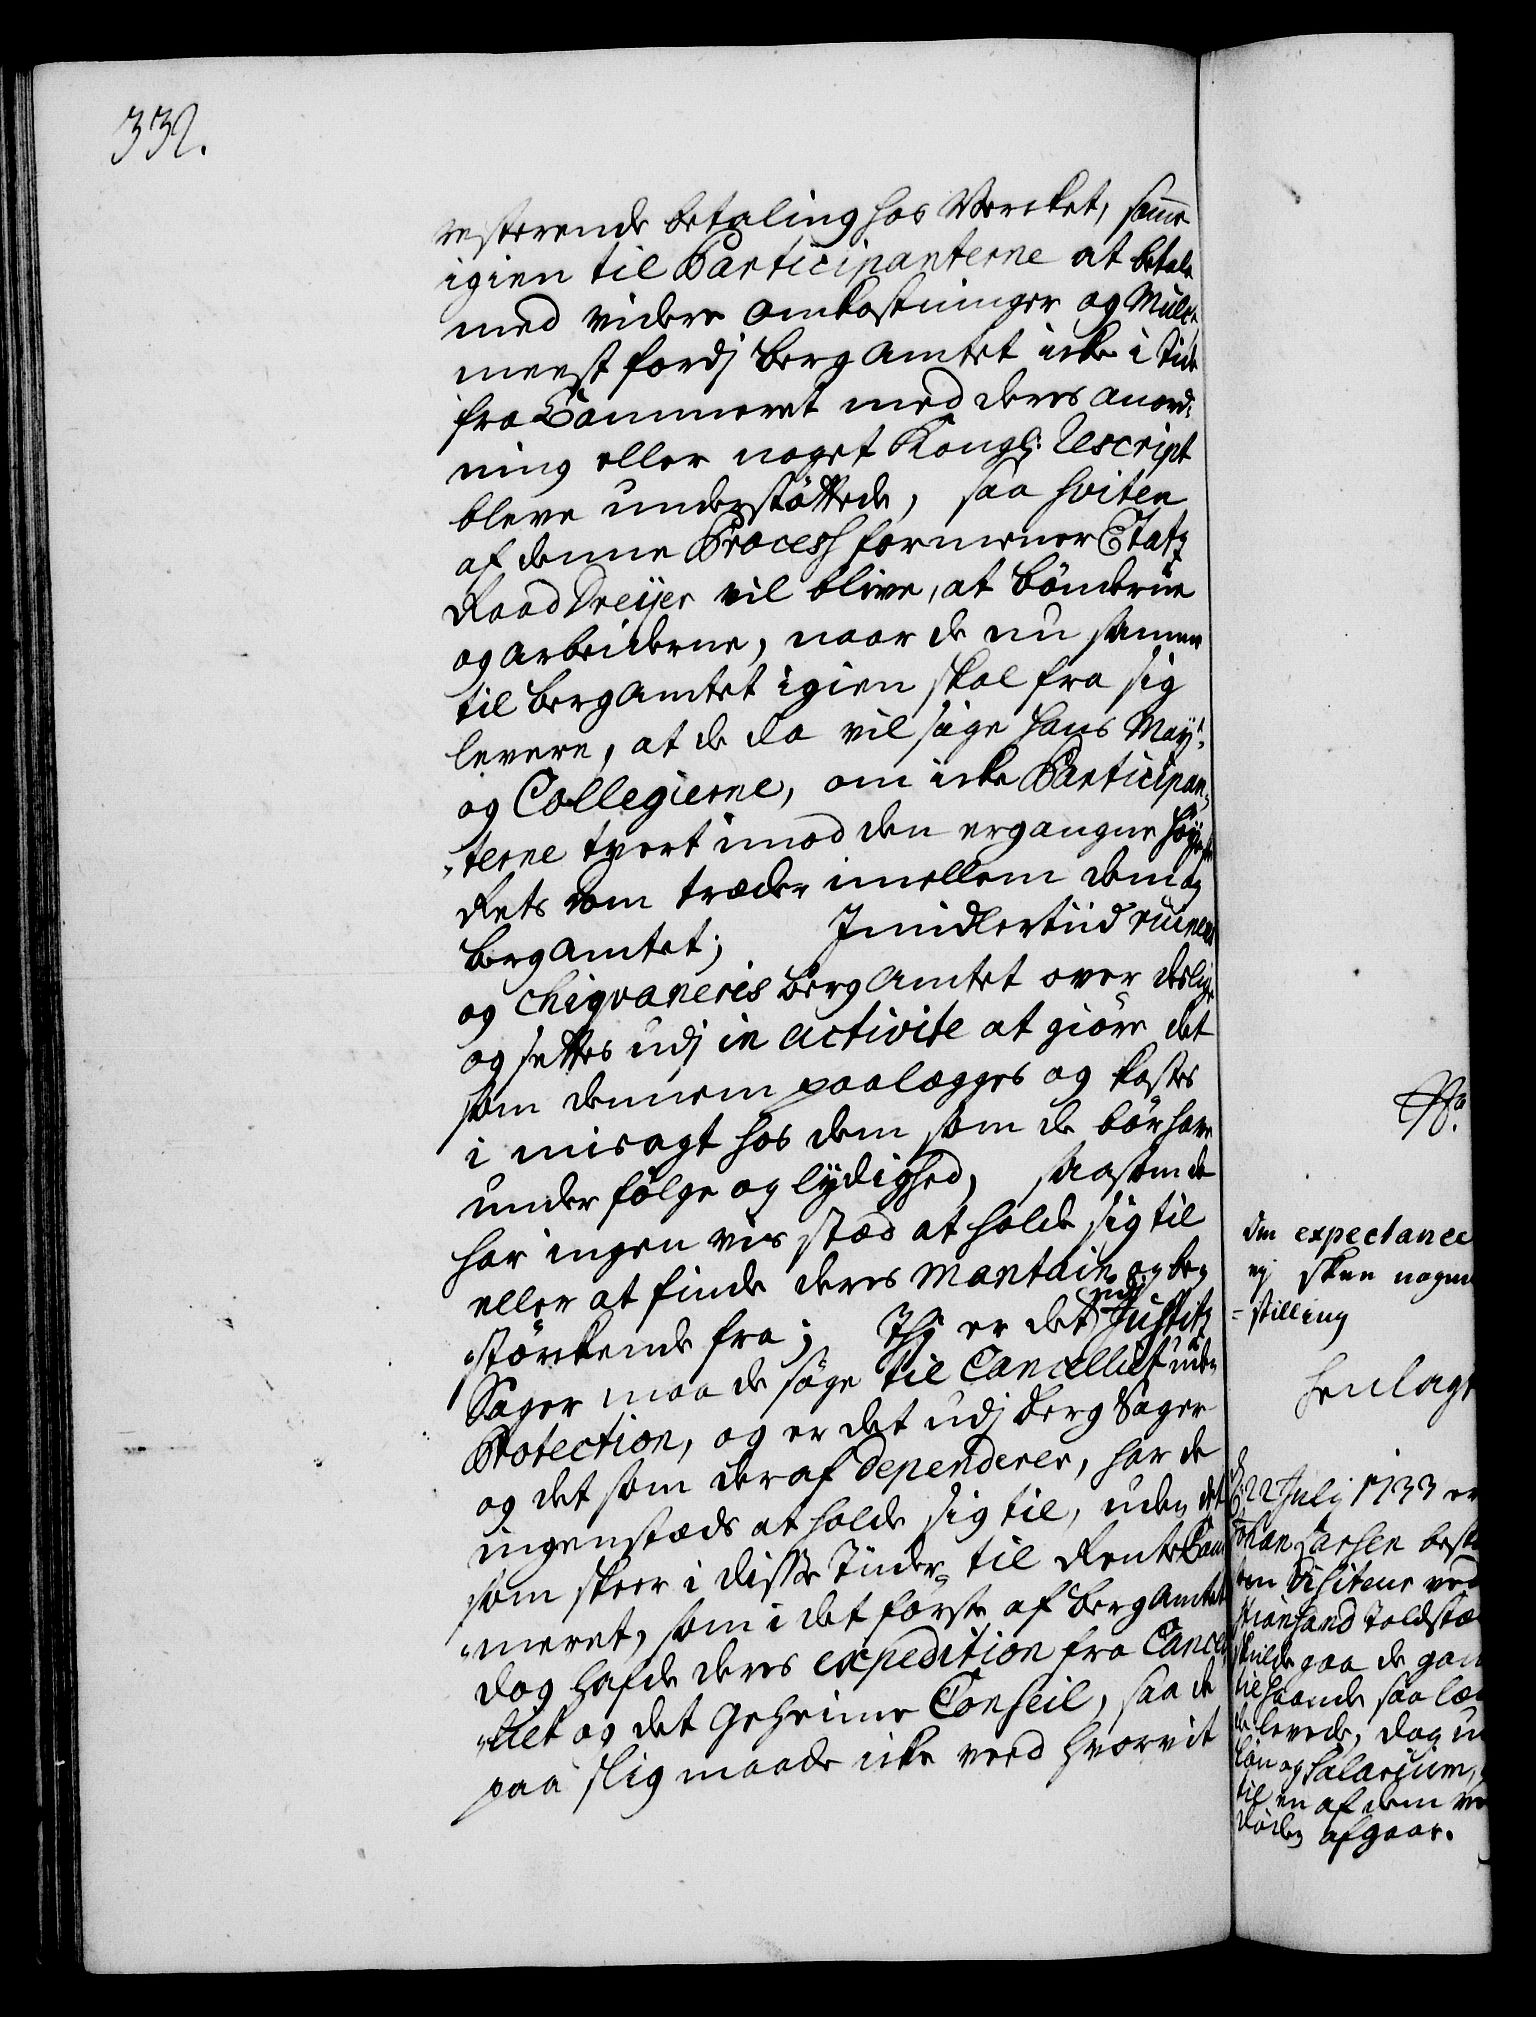 332.
resterende betaling hos Vercket, samme
igien til Participanterne at betale
med videre omkostninger og Mulct
meest fordj Bergamtet icke i tide
fra Cammeret med deres anord-
ning eller noget Kongl: Rescript
bleve understöttede, saa hviten
af denne Process formener Etatz
Raad Dreyer vil blive, at bönderne
og arbeiderne, naar de nu samme
til bergamtet igien skal fra sig
levere, at de da vil sige hans Mayt:
og Collegierne, om icke Participan-
terne tvert imod den ergangne höyeste
Rets dom træder imellem dem og
bergamtet; Imidlertiid ruineres
og chiqvaneris bergamtet over deslige
og settes udj in activite at giöre det
som dennem paalægges og kastes
i misagt hos dem som de bör have
under fölge og lydighed, saasom de
har ingen vis stæd at holde sig til
eller at finde deres Mantain og be-
störkende fra; Thj er det udj Justitz
Sager maa de söge til Cancelliet uden
Protection, og er det udj Berg Sager
og det som deraf dependerer, har de
ingenstæds at holde sig til, uden det
som skeer i disse Tiider til RenteCam-
meret, som i det förste af bergamtet
dog hafde deres expedition fra Cancel-
liet og det Geheime Conseil, saa de
paa slig maade icke veed hvorvit
den expectance
ej skee nogen
stilling
henlagt
d: 22 July 1733 er
Johan Larsen besk
om Visiteur ved
stiansand Toldstæ
skulde gaa de gam
til haande saa læn
de levede, dog u
Lön og Salarium,
til en af dem ve
döden afgaar.